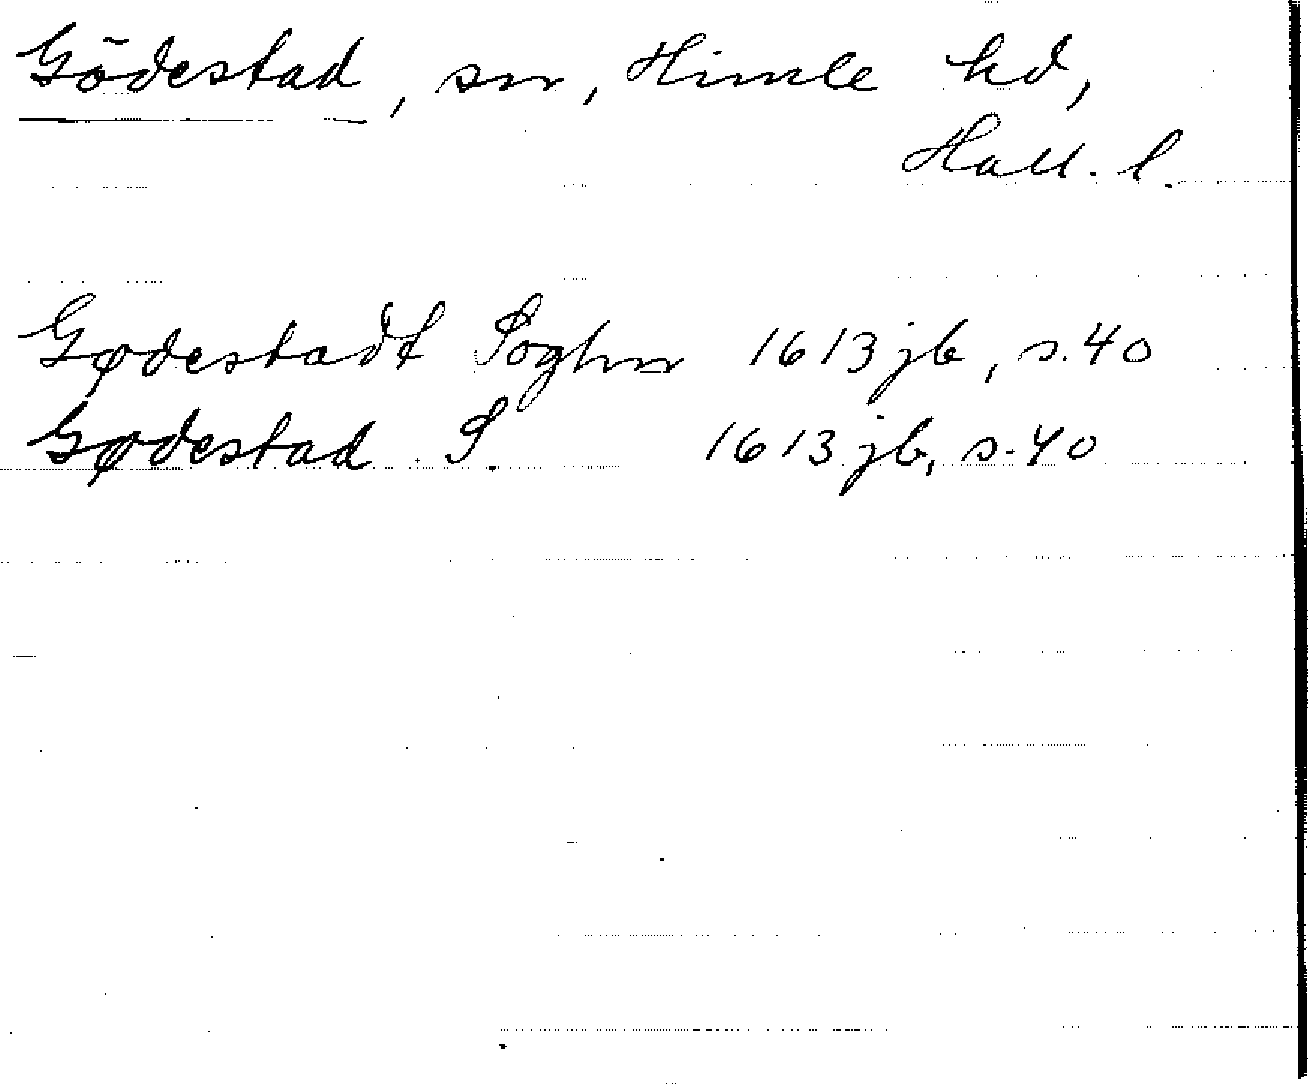 Gödestad, sn, Himle hd,
Hall. l.
Gødestadt Soghnn 1613 jb, s. 40
Gødestad S 1613 jb, s. 40